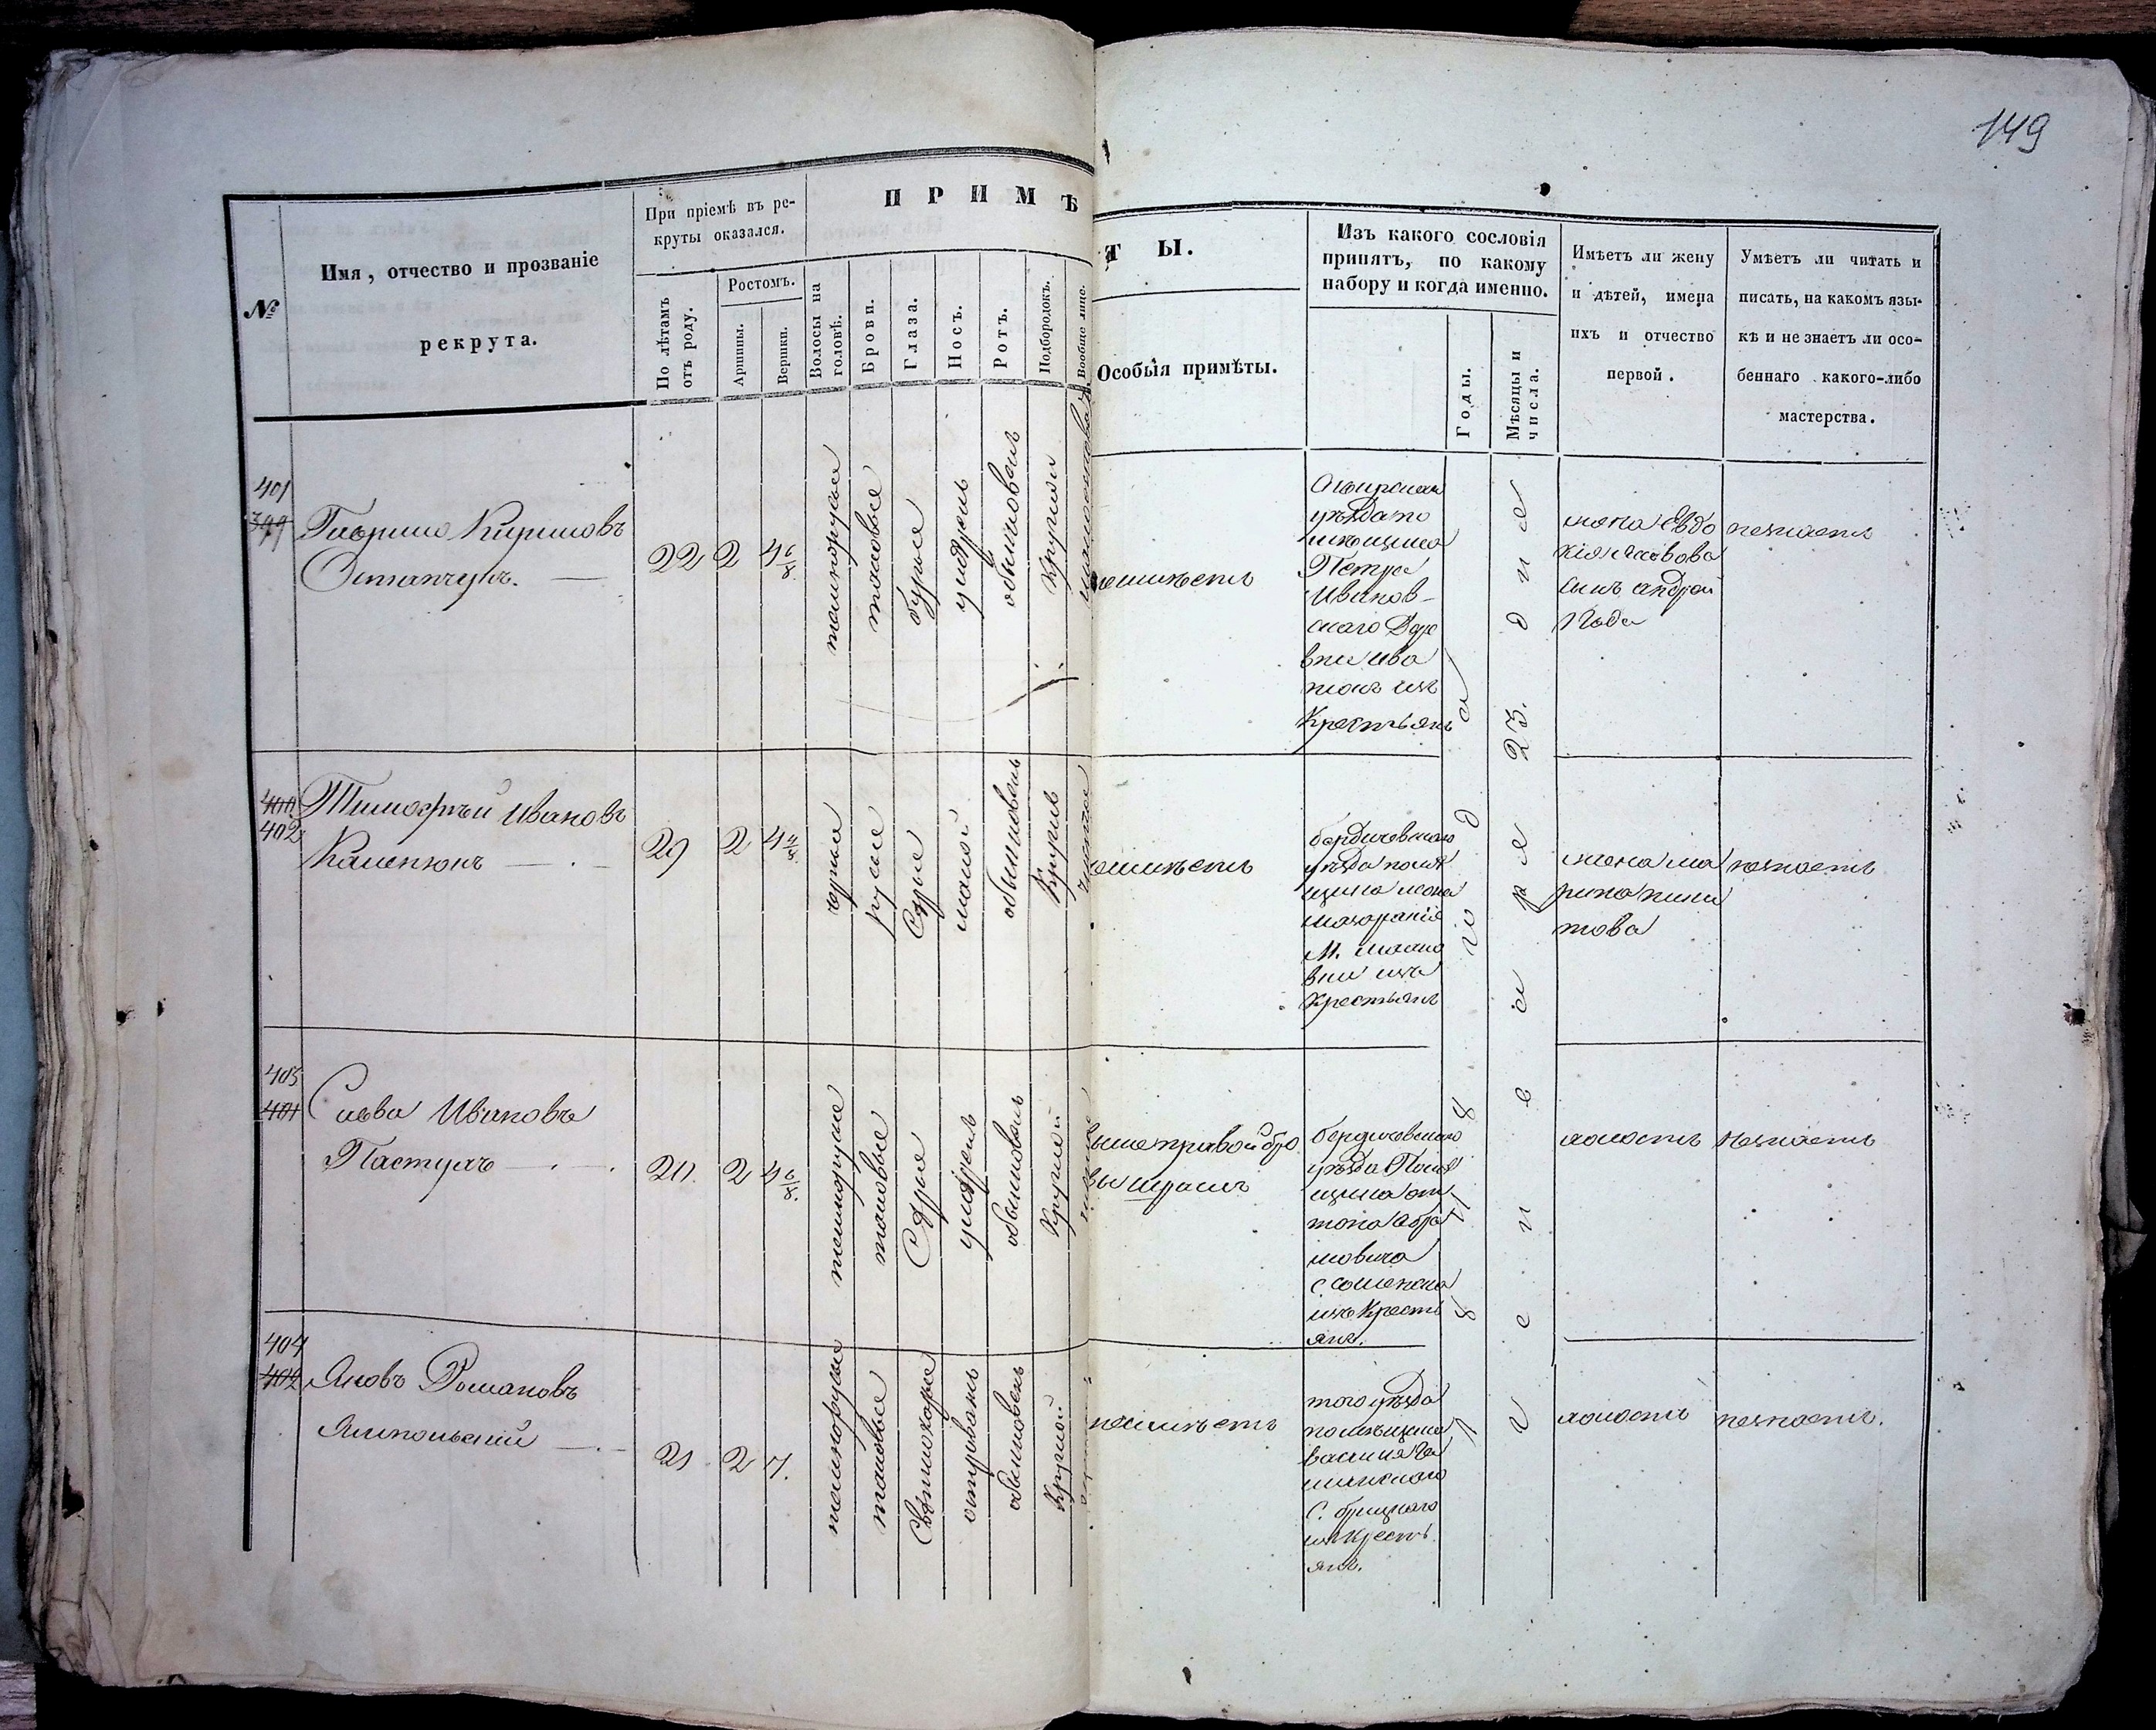 149
№
Имя, отчество и прозваніе
рекрута.
При пріемѣ въ ре-
круты оказался.
По лѣтамъ
отъ роду.
Ростомъ.
Аршины.
Вершки.
ПРИМѢ
Волосы на
головѣ.
Брови.
Глаза.
Носъ.
Ротъ.
Подбородокъ.
Вообще лице.
ТЫ.
Особыя примѣты.
Изъ какого сословія
принятъ, по какому
набору и когда именно.
Годы.
Мѣсяцы и
числа.
Имѣетъ ли жену
и дѣтей, имена
ихъ и отчество
первой.
Умѣетъ ли читать и
писать, на какомъ язы-
кѣ и не знаетъ ли осо-
беннаго какого-либо
мастерства.
401
399
Гаврило Кириловъ
22
2
4 6/8
темнорусые
таковые
бурые
умѣрен
обыкновен
Круглой
неимѣетъ
уѣзда по
мѣщика
Петра
Иванов-
скаго Дере
вни Ива
нокъ изъ
Крестьянъ
жена Евдо
кія
сынъ Андрей
1 года
незнаетъ
400
402
Тимофѣй Ивановъ
Каленюкъ
29
2
4 4/8
черные
русые
Сѣрые
малой
обыкновенъ
Круглъ
чистое
неимѣетъ
бердичевскаго
уѣзда помѣ
щика
М.
вки изъ
Крестьянъ
жена Ма
рина Ники
това
незнаетъ
403
401
Савва Ивановъ
Пастухъ
20.
2
4 6/8.
темнорусые
таковые
Сѣрые
умѣрен
обыкновенъ
Круглой
выше правой бро
вы шрамъ
бердичевскаго
уѣзда Помѣ
щика Ан
тона Абра
мовича
изъ Кресть
янъ.
холостъ
незнаетъ
404
402
Яковъ Романовъ
Ямпольскій
21
2
4.
темнорусые
таковые
Свѣтлокарые
обыкновенъ
Круглой
неимѣетъ
того уѣзда
помѣщика
С.
изъ Кресть
янъ.
холостъ
незнаетъ.